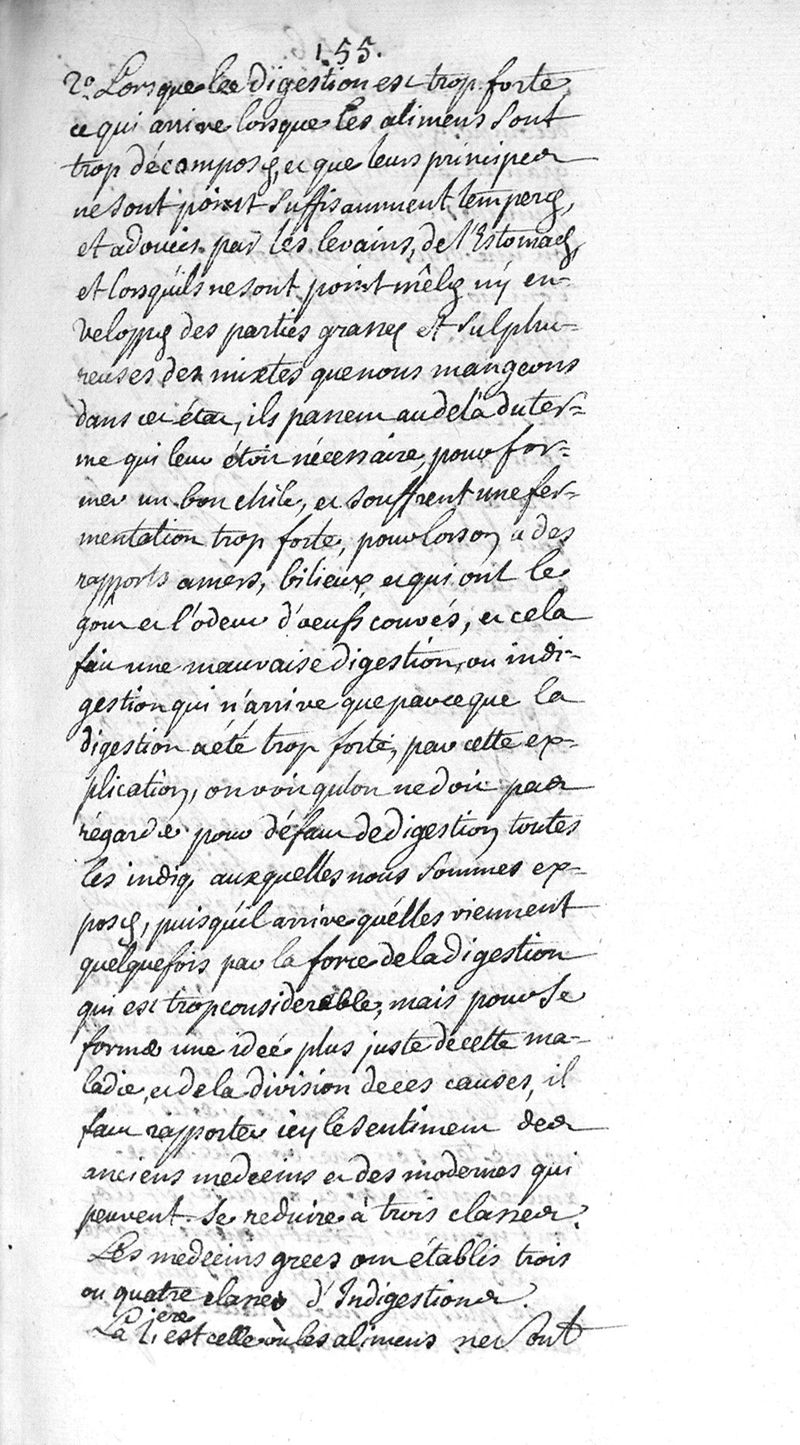 155.
2.° Lorsque la digestion est trop forte,
ce qui arrive lorsque les alimens sont
trop décomposés, et que leurs principes
ne sont point suffisamment temperés,
et adoucis par les levains, de l'Estomach,
et lorsqu'ils ne sont point mêlés ny en-
veloppés des parties grasses et sulphu-
reuses des mixtes que nous mangeons
dans cet état, ils passent au dela du ter=
me qui leur étoit nécessaire, pour for=
mer un bon chile, et souffrent une fer-
mentation trop forte, pour lors on a des
rapports amers, bilieux, et qui ont le
goût et l'odeur d'oeufs couvés, et cela
fait une mauvaise digestion, ou indi-
gestion qui n'arrive que parce que la
digestion a été trop forte, par cette ex-
plication, on voit qu'on ne doit pas
régarder pour défaut de digestion toutes
les indig. auxquelles nous sommes ex-
posés, puisqu'il arrive qu'elles viennent
quelquefois par la force de la digestion
qui est trop considerable, mais pour se
former une ideé plus juste de cette ma-
ladie, et de la division de ces causes, il
faut rapporter icy le sentiment des
anciens medecins et des modernes qui
peuvent se reduire à trois classes.
Les medecins grecs ont établis trois
ou quatre classes d'Indigestions.
La 1.ere est celle où les alimens ne sont